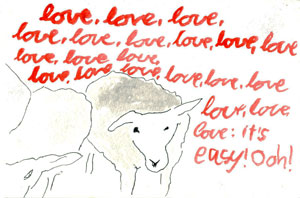 love, love, love,
love, love, love, love, love, love
love, love, love,
love, love, love, love, love, love
love, love
love: it's
easy! Ooh!